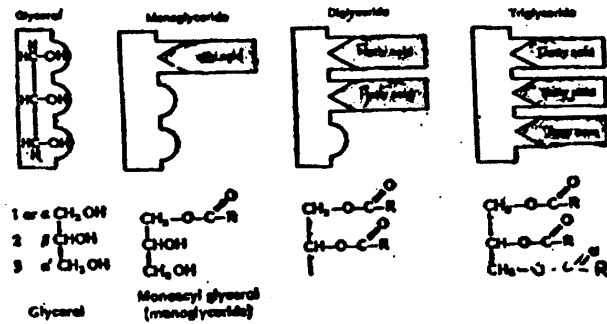 Glycerol Monoglyceride Diglyceride Triglyceride
H
HC-OH
HC-OH
HC-OH
H
Fatty acid
Fatty acid
Fatty acid
1 or α CH₂OH
2 β CHOH
3 α' CH₂OH
Glycerol
O
CH₂-O-C-R
CHOH
CH₂OH
Monoacyl glycerol
(monoglyceride)
O
CH₂-O-C-R
O
CH-O-C-R
O
CH₂-O-C-R
O
CH-O-C-R
CH₂-O-C-R